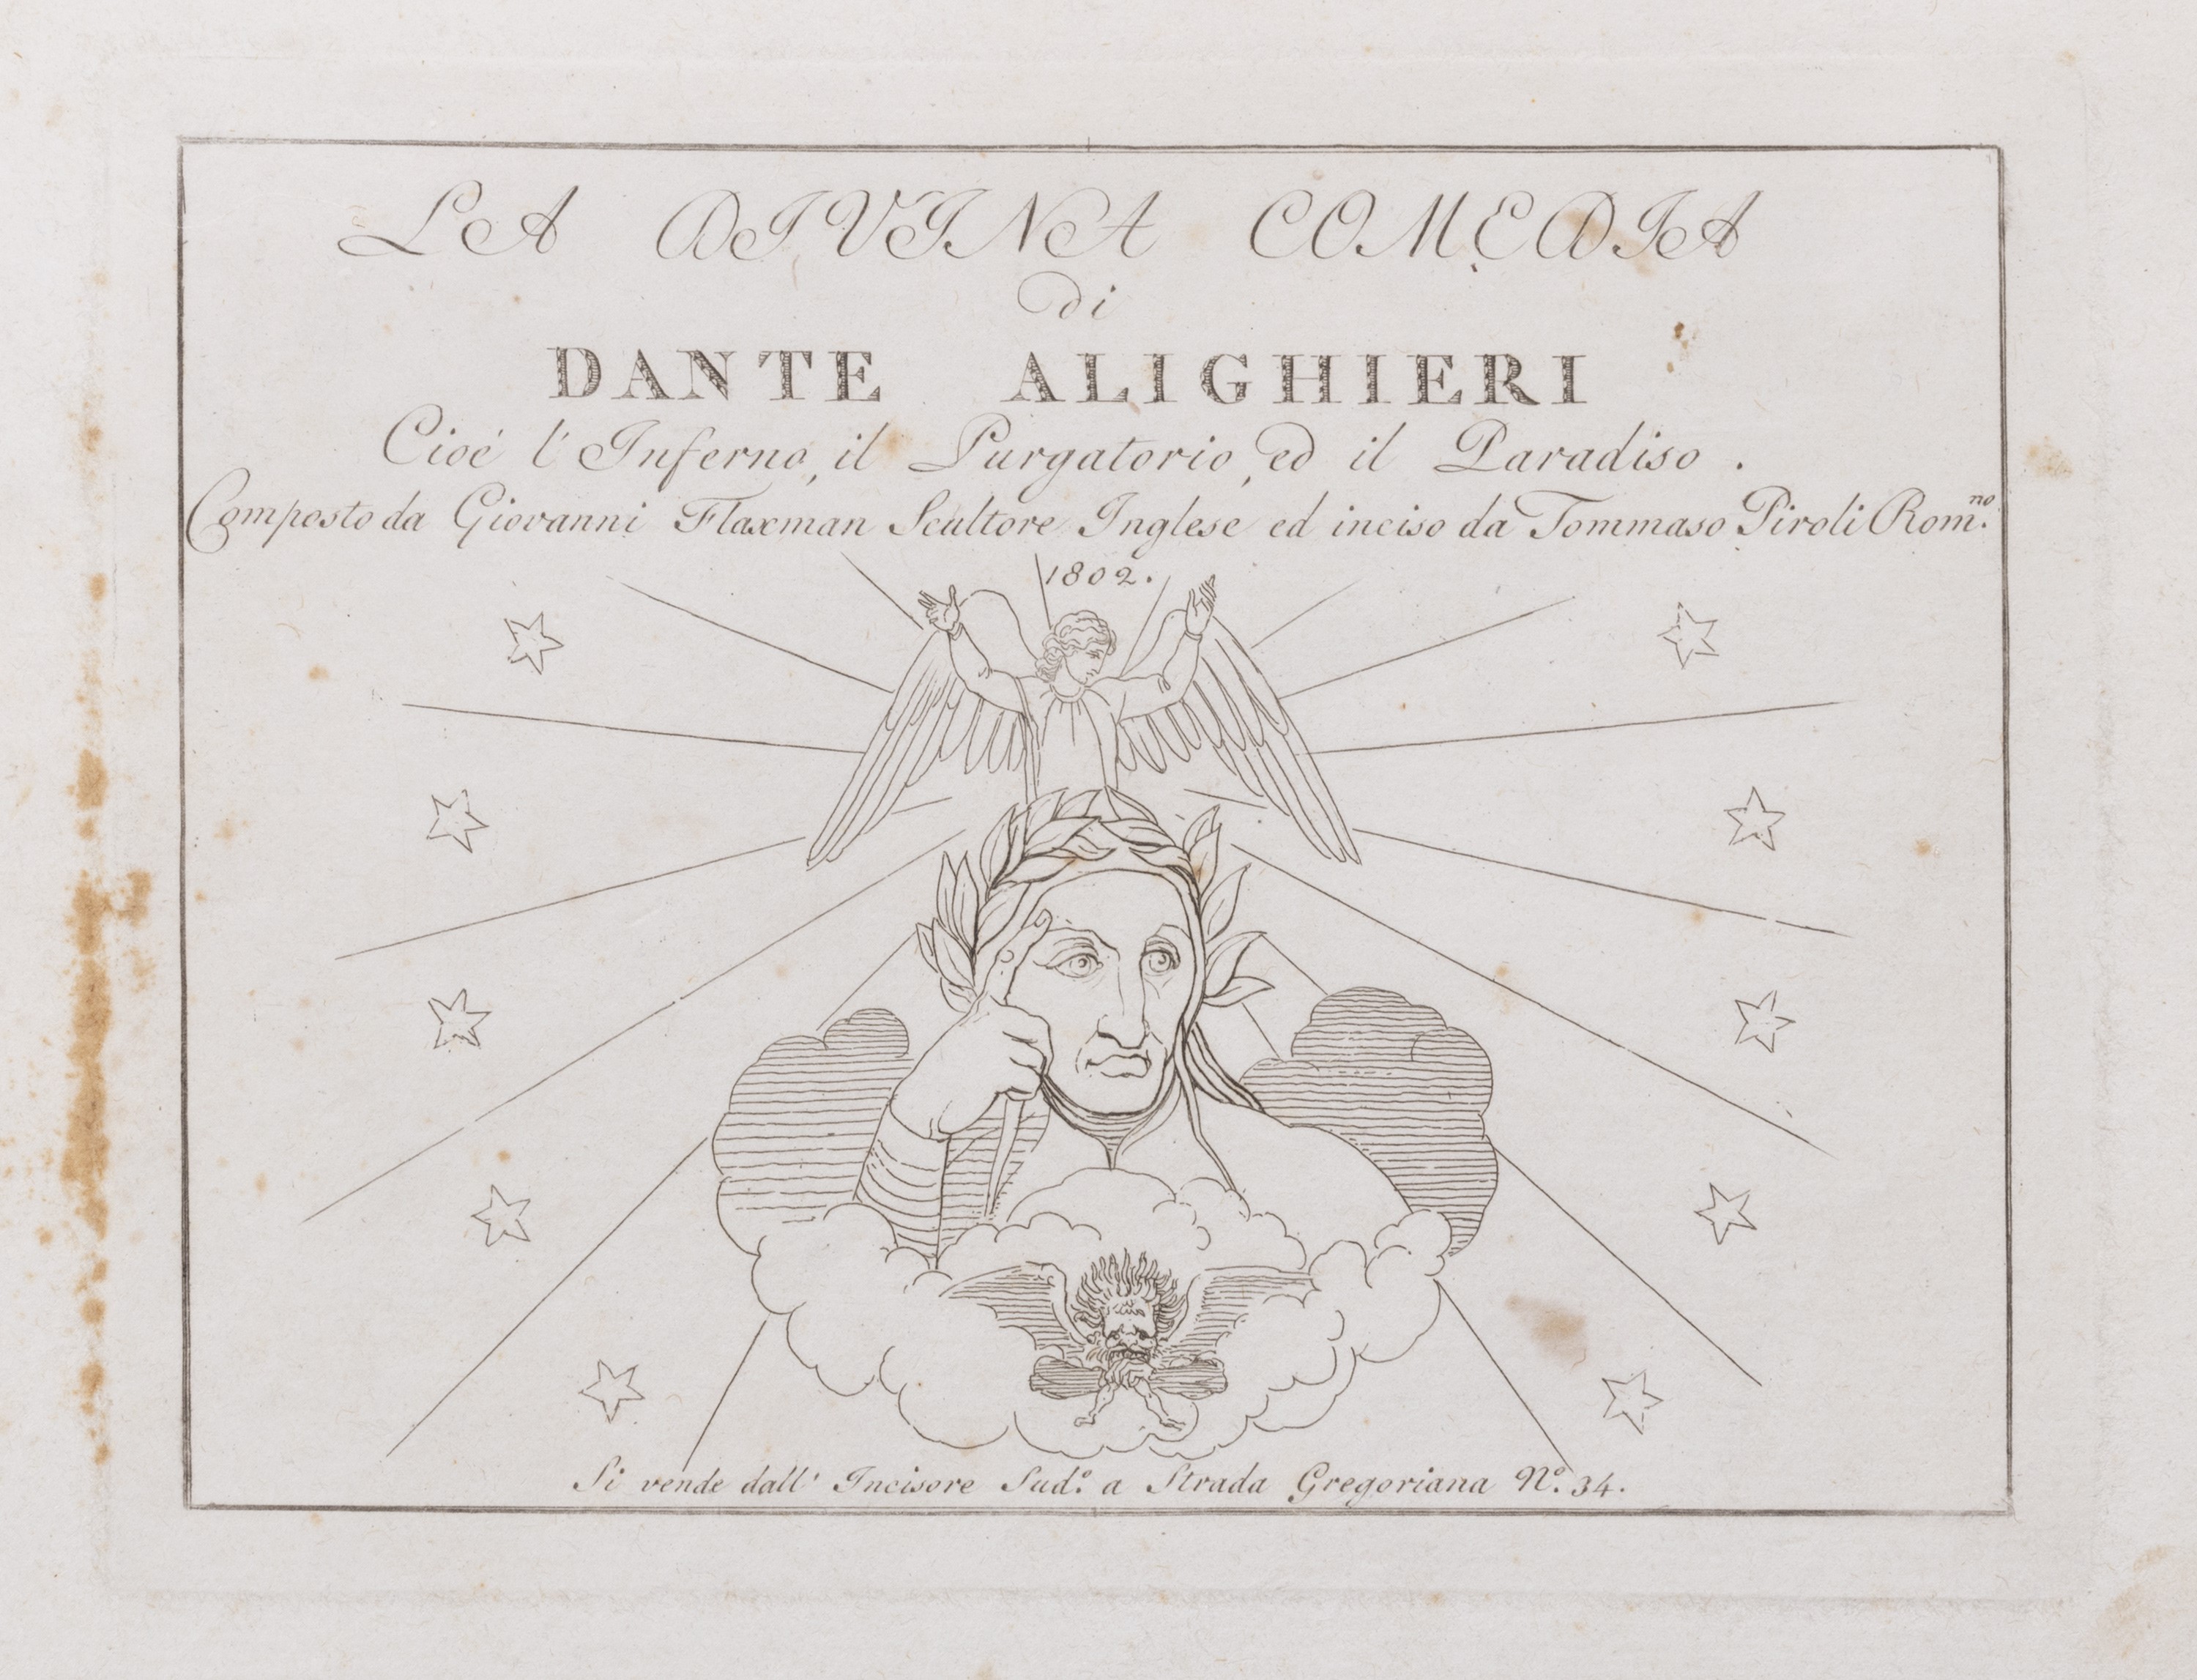 LA DIVINA COMEDIA
di
DANTE ALIGHIERI
Cioé l'Inferno, il Purgatorio, ed il Paradiso.
Composto da Giovanni Flaxman Scultore Inglese ed inciso da Tommaso Piroli Rom.no
1802.
Si vende dall' Incisore Sud.o a Strada Gregoriana N.o 34.